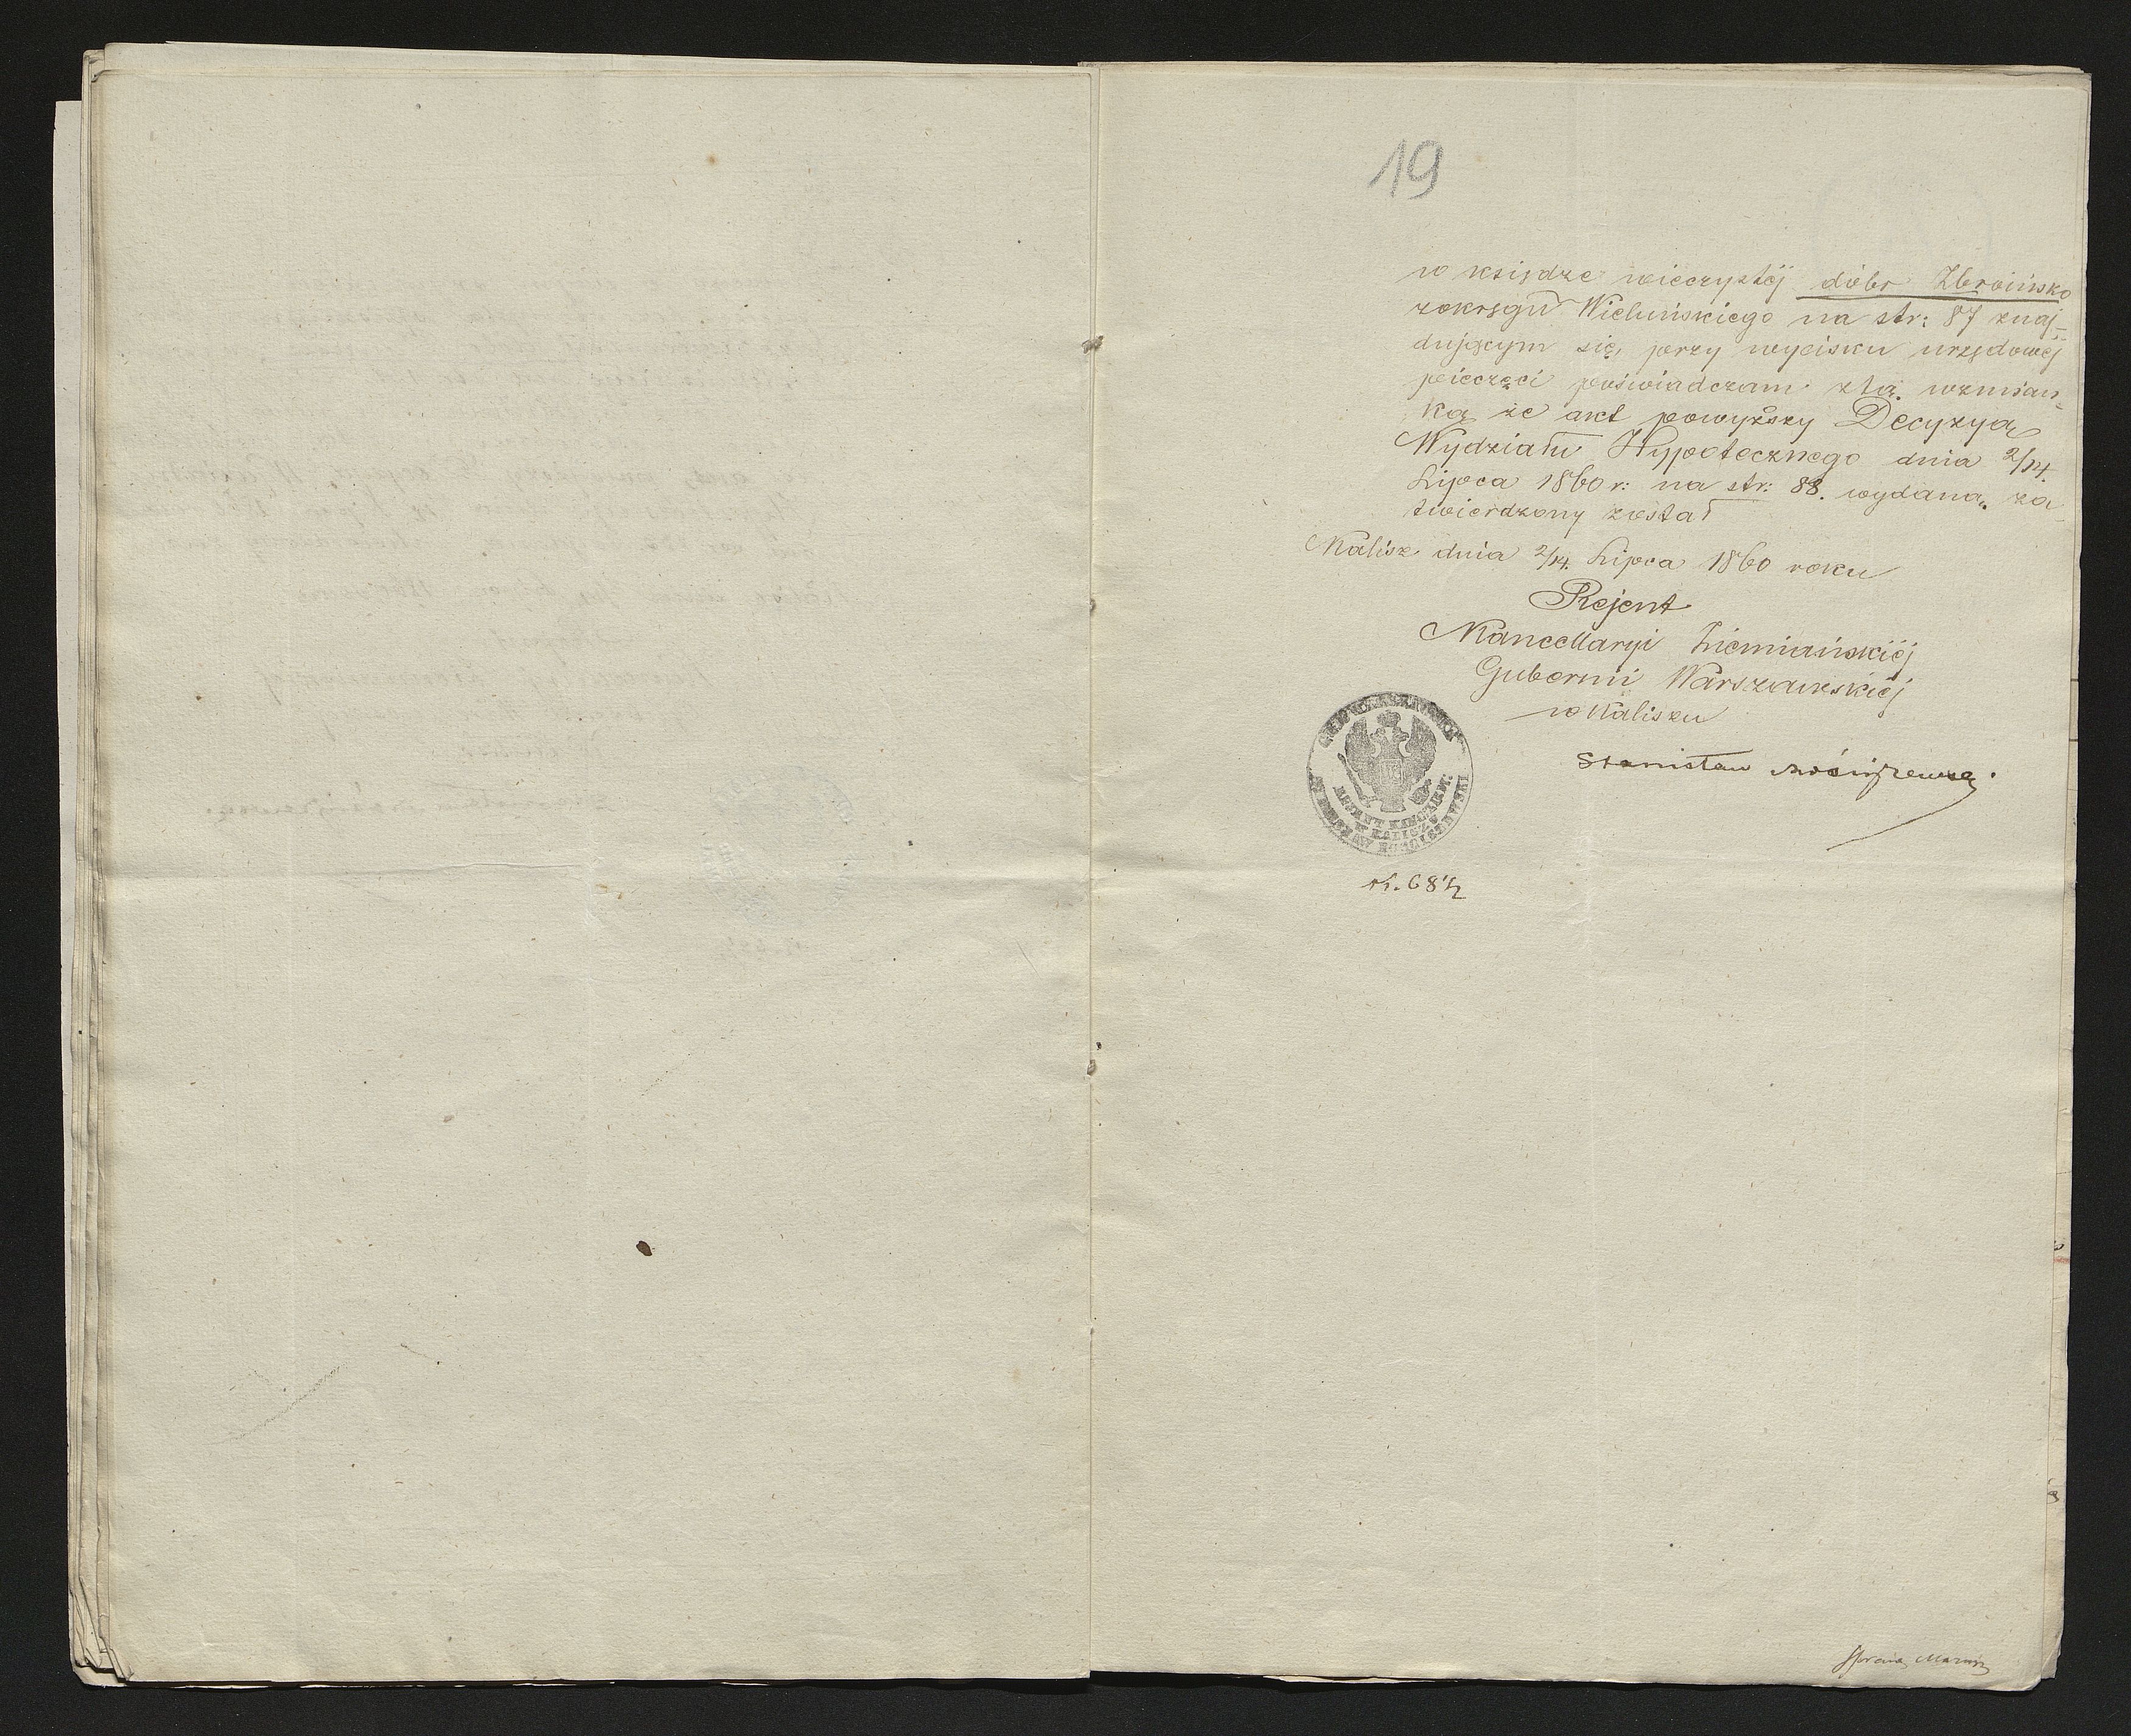 19
w księdze wieczystéj dóbr Zbroińsko
zokręgu Wieluńskiego na str: 87 znaj=
dującym się, przy wycisku urzędowéj
pieczęci poświadczam ztą wzmian=
ką że akt powyższy Decyzyą
Wydziału Hypotecznego dnia 2/14.
Lipca 1860 r: na str: 88. wydaną za
twierdzony został
Kalisz dnia 2/14. Lipca 1860 roku
Rejent
Kancellaryi Ziemiańskiéj
Gubernii Warszawskiéj
w Kaliszu
Stanisław
REJENT KANC: ZIEM:
W KALISZU